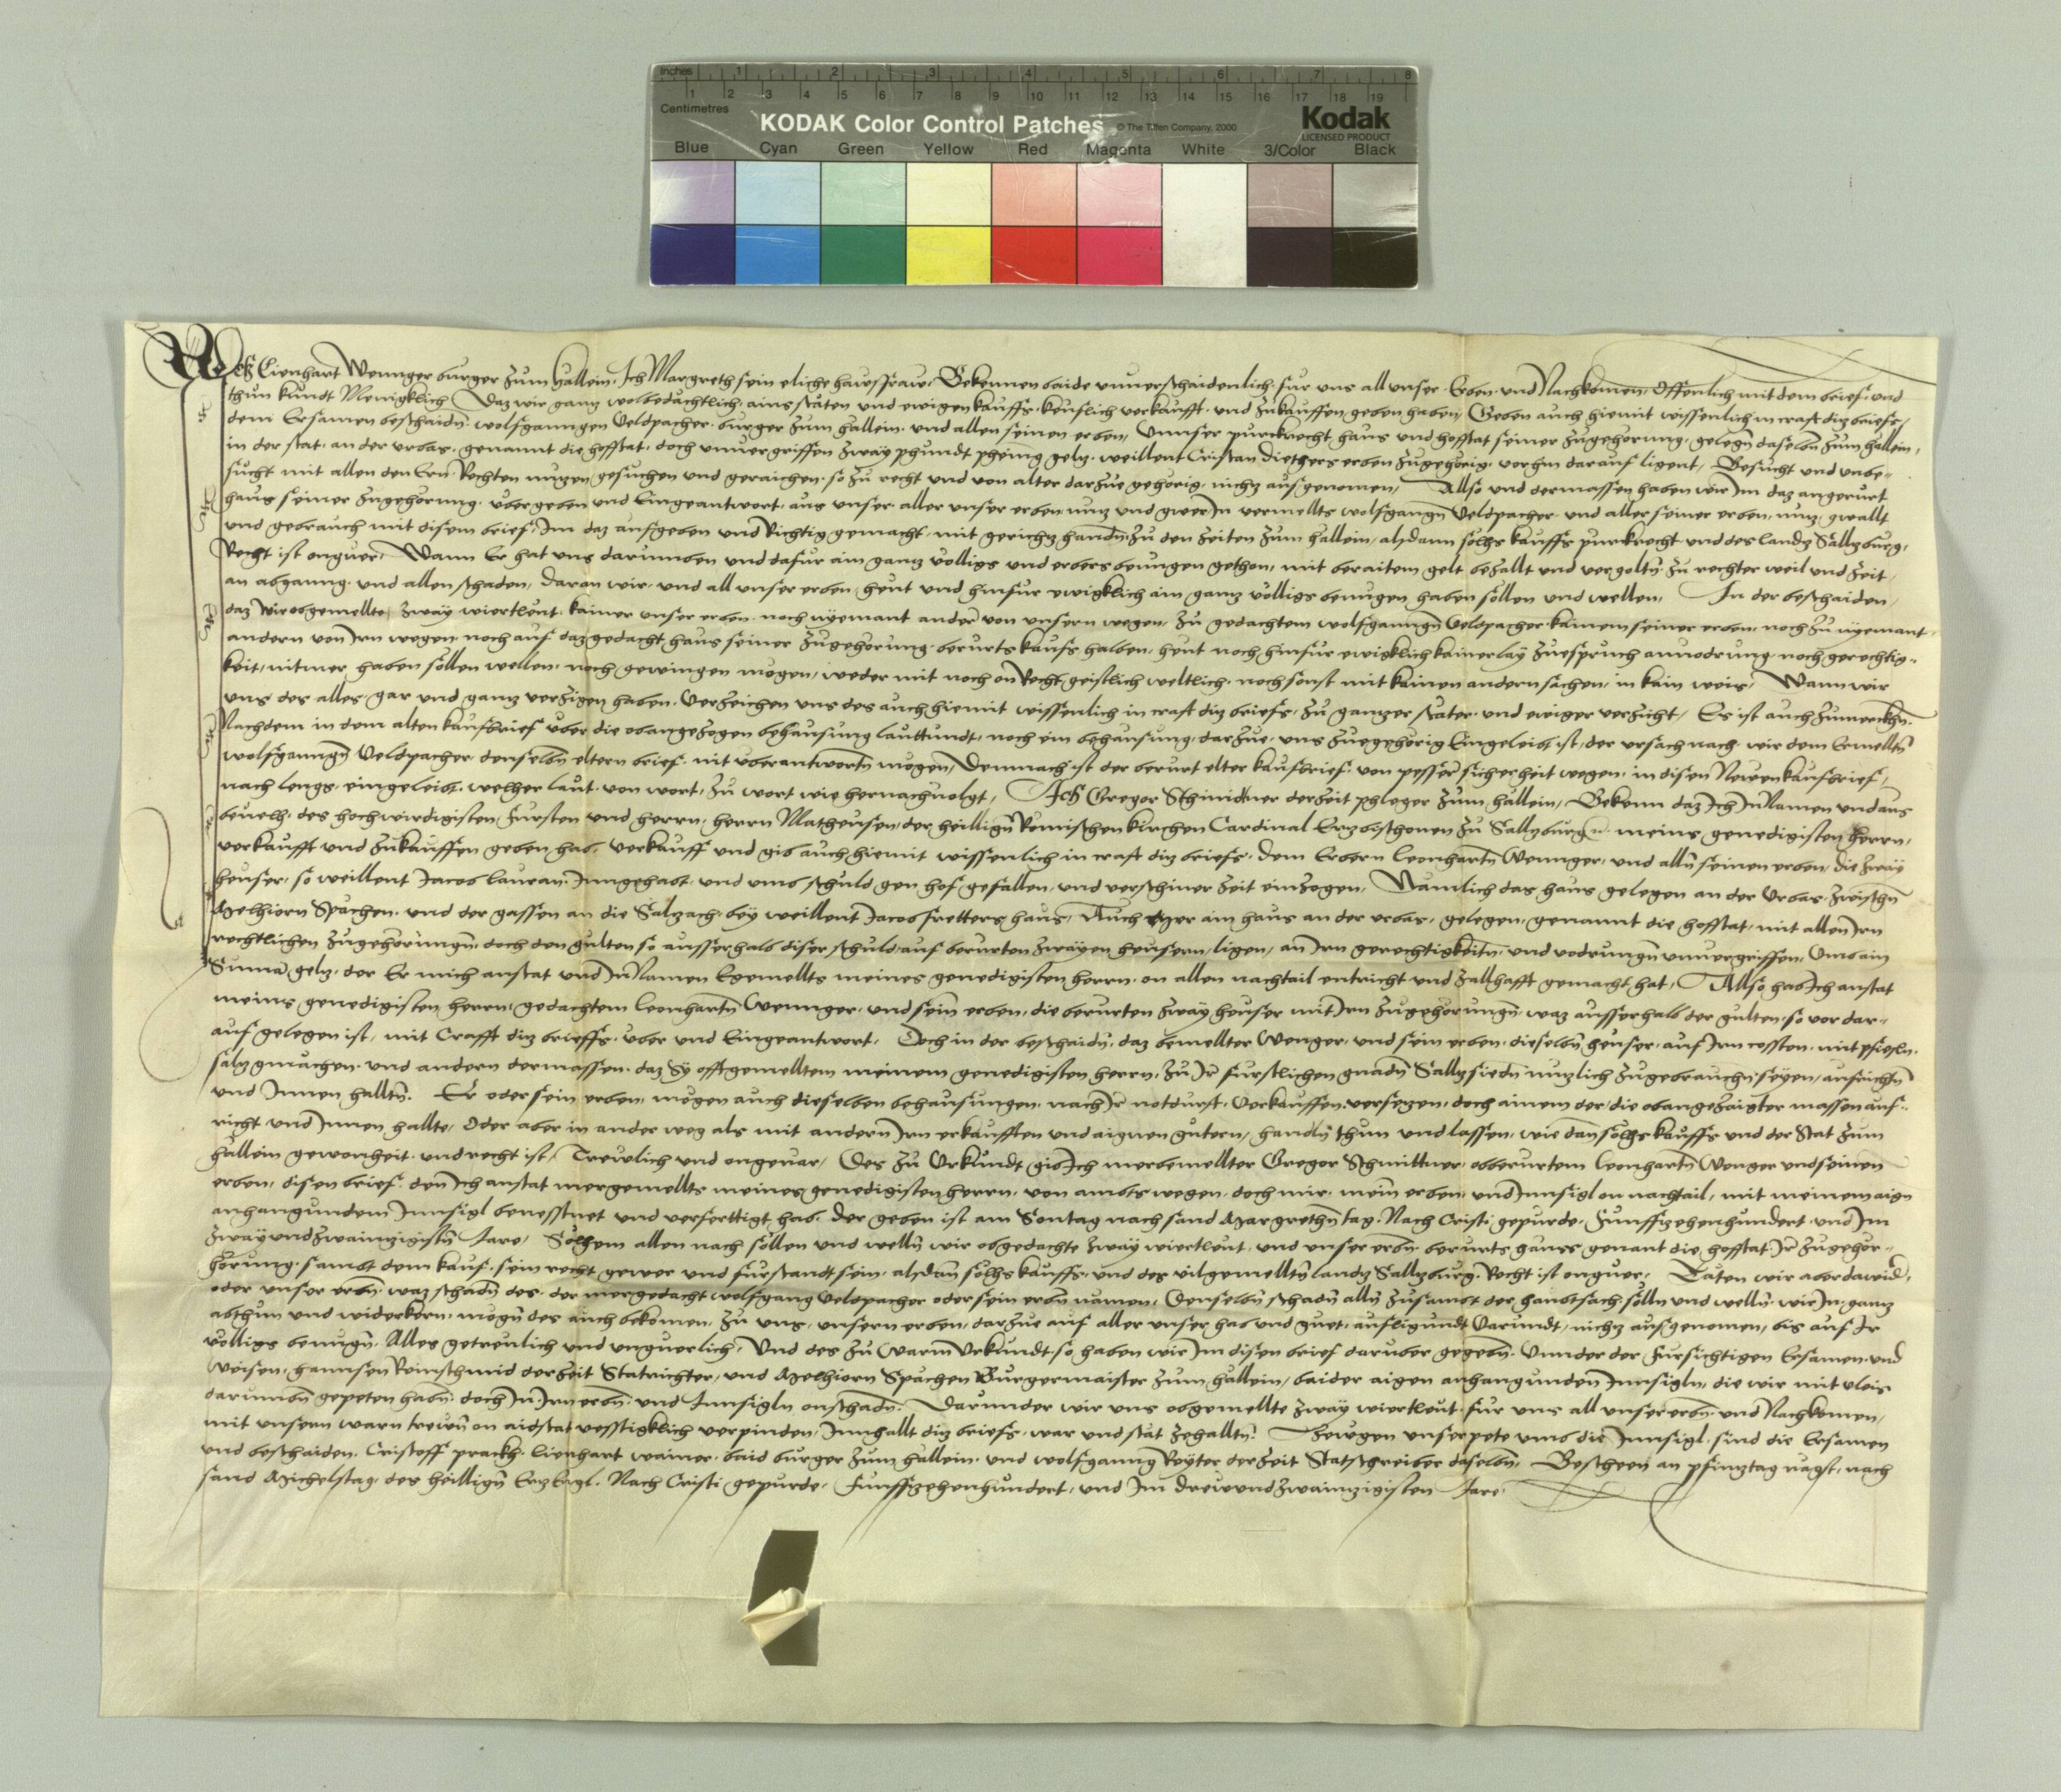 Inches 1 2 3 4 5 6 7 8
Centimetres 1 2 3 4 5 6 7 8 9 10 11 12 13 14 15 16 17 18 19
KODAK Color Control Patches © The Tiffen Company, 2000 Kodak
LICENSED PRODUCT
Blue Cyan Green Yellow Red Magenta White 3/Color Black
Ich Lienhart Wennger burger zum Hallein, Ich Margreth sein eliche hawsfraw, Bekennen baide unverschaidenlich, fur uns all unser Erben und Nachkomen, Offenlich mit dem brief und
thun kundt Menigklich Daz wir ganz wolbedachtlich, ains stäten und ewigen kauffs, keuflich verkaufft und zukauffen geben haben, Geben auch hiemit wissenlich in craft diz briefs,
dem Ersamen beschaidn wolfganngen Veldpacher burger zum hallein und allen seinen erben, Unnser purckrecht haus und hofstat seiner zugehorung, gelegn daselbn zum hallein,
in der stat, an der urbas, genannt die hofstat, doch unvergriffen zway phundt phening gelz, weillent Cristan Diethers erben zugehörig, vorhin darauf ligent, Besucht und unbe-
sucht mit allen den Ern Rechten nuzen gesuchen und geraichen, so zu recht und von alter darzue gehörig, nichz ausgenomen, Allso und dermassen haben wir Im daz angerurt
haus seiner zugehorung, ubergeben und Eingeantwort, aus unser aller unser erben nuz und gwer In vermellts wolfganngn Veldpacher und aller seiner erben, nuz, gwallt
und gebrauch mit disem brief, Im daz aufgeben und Richtig gemacht, mit gerichz handn zu den zeiten zum hallein, alsdann solhs kauffs purckrecht und des landz Sallzburg,
Recht ist ongever, Wann Er hat uns darumben und dafur ain ganz volligs und erbers benuegen gethon, mit beraitem gelt bezallt und vergoltn zu rechter weil und zeit,
an abganng und allen schaden, daran wir und all unser erben heut und hinfur ewigklich ain ganz volligs benugen haben sollen und wellen, In der beschaiden,
daz wir obgemellte zway wiertleut, kainer unser erben noch nyemant ander von unsern wegen, zu gedachtem wolfganngn Veldpacher kainem seiner erben, noch zu nyemant
andern von Irn wegen, noch auf daz gedacht haus seiner zugehorung berurts kaufs halben, heut noch hinfur ewigklich kainerlay zuespruch anvodrung noch gerechtig-
keit, nitmer haben sollen wellen, noch gewingen mogen, weder mit noch on Recht, geistlich weltlich, noch sonst mit kainen andern sachen, in kain weis, Wann wir
uns des alles, gar und ganz verzigen haben, Verzeichen uns des auch hiemit wissenlich in craft diz briefs, zu ganzer stäter und ewiger verzicht, Es ist auch zumerckhn
Nachdem in dem alten kaufbrief uber die obangezogen behausung lauttundt, noch ein behausung, darzue, uns zuegehörig Eingeleibt ist, der ursach nach, wir dem Ermelltn
wolfganngn Veldpacher denselbn eltern brief, nit uberantwortn mogen, Demnach ist der berurt elter kaufbrief, von pesser sicherheit wegen, in disen Newen kaufbrief,
nach lengs, eingeleibt, welher laut von wort, zu wort wie hernachvolgt, Ich Gregor Schmidtner derzeit phleger zum hallein, Bekenn daz Ich In Namen und aus
bevelh, des hochwirdigisten fursten und herrn, herrn Matheusen, der heillign Romischen kirchen Cardinal Erzbischoven zu Sallzburg, meins genedigisten herrn,
verkaufft und zukauffen geben hab, verkauff und gib auch hiemit wissenlich in craft diz briefs, dem Erbern Leonhartn Wennger, und alln seinen erben, die zway
heuser, so weillent Jacob lauran Inngehabt, und umb schuld gen hof gefallen, und verschiner zeit einzogen, Namlich das haus gelegen an der Urbas, zwischn
Melhiorn Spachen und der gassen an die Salzach, bey weillent Jacob fretters haus, Auch mer ain haus an der urbas, gelegen, genannt die hofstat, mit allen Irn
rechtlichen zugehorungn, doch den gulten so ausserhalb diser schuld auf berurten zwayen heusern, ligen, an Irn gerechtigkeitn und vodrungn unvergriffen, Umb ain
Suma gelz, der Er mich anstat und In Namen Egemellts meines genedigisten herrn, on allen nachtail entricht und zallhafft gemacht hat, Allso hab Ich anstat
meins genedigisten herrn, gedachtem Leonhartn Wennger, und sein erben, die berurten zway heuser mit Irn zugehorungn, waz ausserhalb der gulten, so vor dar-
auf gelegen ist, mit Crafft diz brieffs, uber und Eingeantwort, Doch in der beschaidn, daz bemellter Wenger, und sein erben, dieselbn heuser, auf Irn cossten, mit phiesln,
salzgmachen und andern dermassen, daz Sy offtgemelltem meinem genedigisten herrn, zu Ir furstlichen gnadn Sallzsiedn nuzlich zugebrauchn seyen, aufrichtn
und Innen halltn. Er oder sein erben, mogen auch dieselben behausungen, nach Ir notdurft, Verkauffen, versezen, doch ainem der, die obangezaigter massen auf-
richt und Innen hallte, Oder aber in ander weg als mit andern Irn erkaufften und aignen gutern, handln thun und lassen, wie dan solhs kauffs und der Stat zum
hallein gewonheit und recht ist, Trewlich und ongevar, Des zu Urkundt gib Ich merbemellter Gregor Schmittner, obberurtem Leonhartn Wenger und seinen
erben, disen brief, den Ich anstat mergemellts meines genedigisten herrn, von ambts wegen, doch mir, mein erben, und Innsigl on nachtail, mit meinem aign
anhangundem Innsigl bevesstnet und verferttigt hab, Der geben ist am Sontag nach sand Margrethn tag, Nach Cristi gepurde, Funffzehenhundert und Im
zwayundzwainzigistn Jare, Solhem allen nach sollen und welln wir obgedachte zway wiertleut, und unser erbn, berurts haus genant die hofstat Ir zugehor-
horung, sambt dem kauf, sein recht gewer und furstandt sein, alsdan solhs kauffs, und des vilgemelltn landz Sallzburg, Recht ist ongever, Täten wir aber dawid,
oder unser erbn, waz schadn des, der mergedacht wolfgang Veldpacher oder sein erbn namen, Denselbn schadn alln zusambt der haubtsach, solln und welln wir In ganz
abthun und widerkern, mogn des auch bekomen, zu uns, unsern erben, darzue auf aller unser hab und guet, aufligundt Varundt, nichz ausgenomen, bis auf Ir
volligs benugn, Alles getreulich und ungverlich, Und des zu Warm Urkundt, so haben wir Im disen brief daruber gegebn, Unnder der fursichtigen Ersamen und
Weisen, hannsen Reinschmid derzeit Statrichter, und Melhiorn Spachen Burgermaister zum hallein, baider aigen anhangunden Innsigln, die wir mit vleis
darumbn gepeten habn, doch In Irn erbn und Innsigln onschadn. Darunder wir uns obgemellte zway wiertleut, fur uns all unser erbn und Nachkomen,
mit unsern warn trewn on aidstat vesstigklich verpinden, Innhallt diz briefs, war und stät zehalltn. Zewgen unser pete umb die Innsigl, sind die Ersamen
und beschaiden, Cristoff prackh, lienhart wainer, baid burger zum hallein, und wolfganng Reyter derzeit Statschreiber daselbn, Beschehen an phinztag nagst, nach
sand Michelstag, des heillign Erz Engl, Nach Cristi gepurde, Funffzehenhundert, und Im drewundzwainzigisten Jare